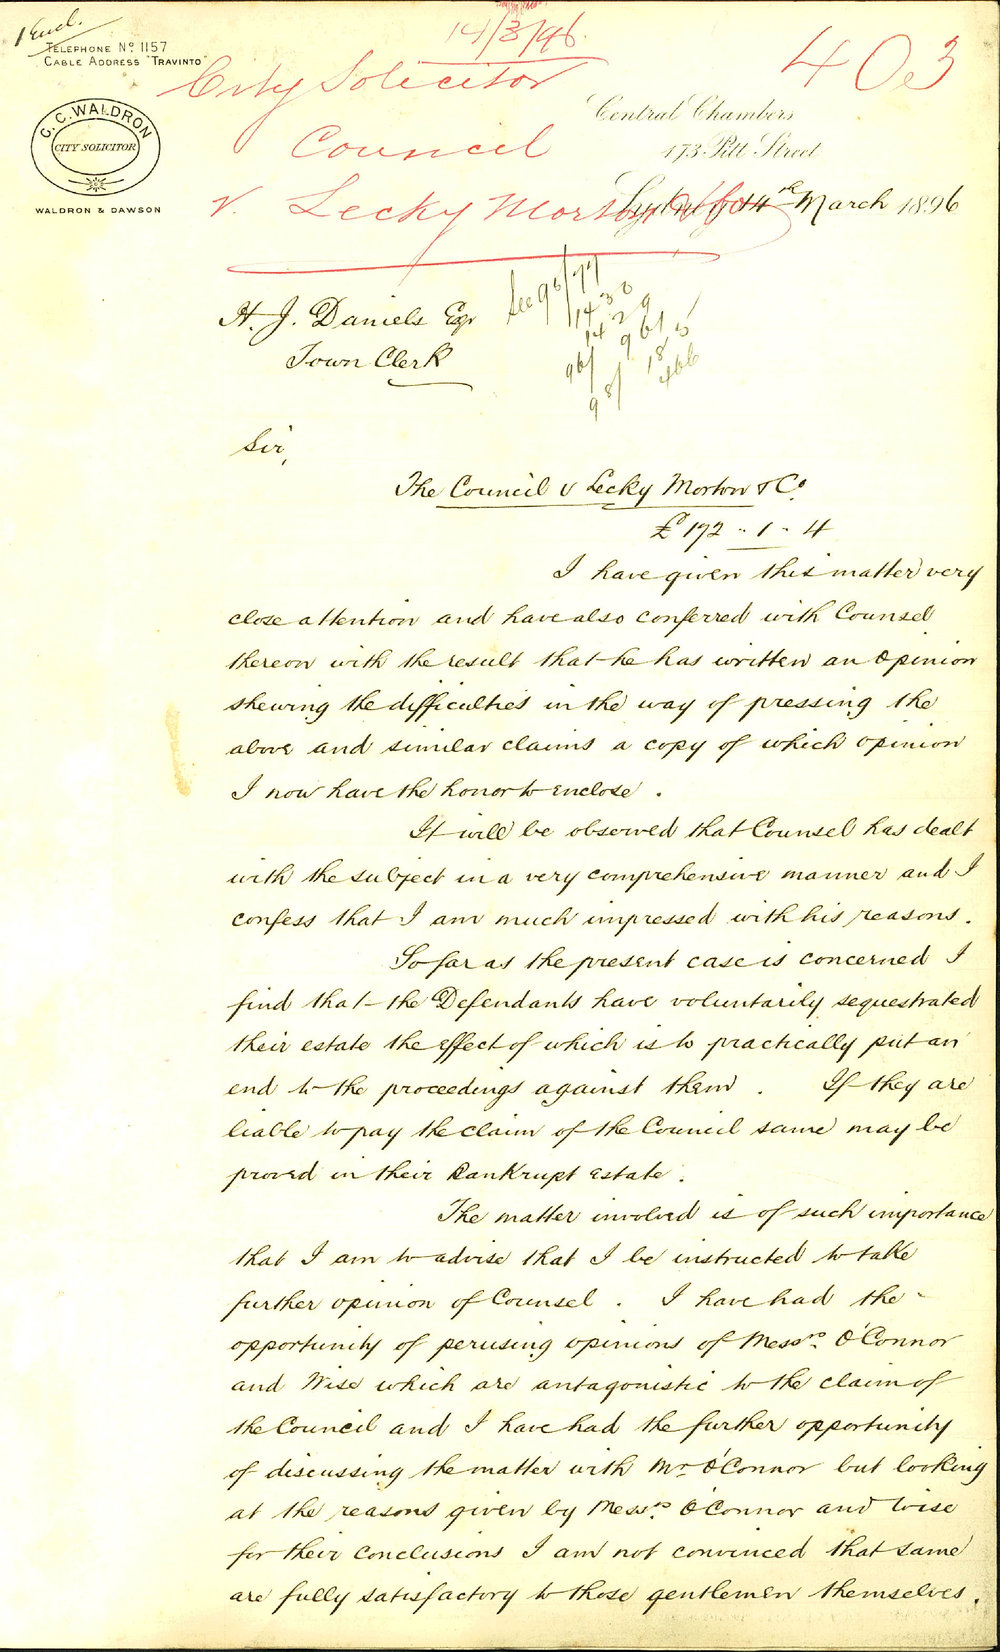 1 Encl.
14/3/96.
TELEPHONE No 1157
CABLE ADDRESS "TRAVINTO"
403
City Solicitor
Central Chambers
C. C. WALDRON
CITY SOLICITOR
Council
173 Pitt Street
WALDRON & DAWSON
v. Lecky Morton & Co
Sydney 14th March 1896
H. J. Daniels Esqr
Town Clerk
See 95/77
1430
1429
961
96/
98/
466
Sir,
The Council v Lecky Morton & Co
£172 - 1 - 4
I have given this matter very
close attention and have also conferred with Counsel
thereon with the result that he has written an Opinion
shewing the difficulties in the way of pressing the
above and similar claims a copy of which opinion
I now have the honor to enclose.
It will be observed that Counsel has dealt
with the subject in a very comprehensive manner and I
confess that I am much impressed with his reasons.
So far as the present case is concerned I
find that the Defendants have voluntarily sequestrated
their estate the effect of which is to practically put an
end to the proceedings against them. If they are
liable to pay the claim of the Council same may be
proved in their Bankrupt Estate.
The matter involved is of such importance
that I am to advise that I be instructed to take
further opinion of Counsel. I have had the
opportunity of perusing opinions of Messrs. O'Connor
and Wise which are antagonistic to the claim of
the Council and I have had the further opportunity
of discussing the matter with Mr O'Connor but looking
at the reasons given by Messrs. O'Connor and Wise
for their conclusions I am not convinced that same
are fully satisfactory to those gentlemen themselves.